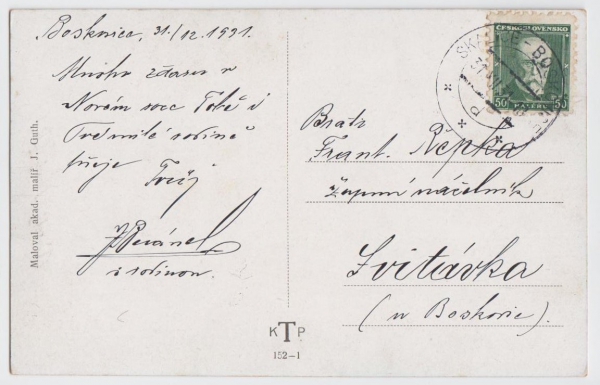 Boskovice, 31./12. 1931.
Mnoho zdaru v
Novém roce Tobě i
Tvé milé rodině
přeje
Tvůj
s rodinou.
Maloval akad. malíř J. Guth.
K T P
152-1
ČESKOSLOVENSKO
50 HALÉŘŮ 50
Bratr
Frant. Řepka
župní náčelník
Svitávka
(u Boskovic).